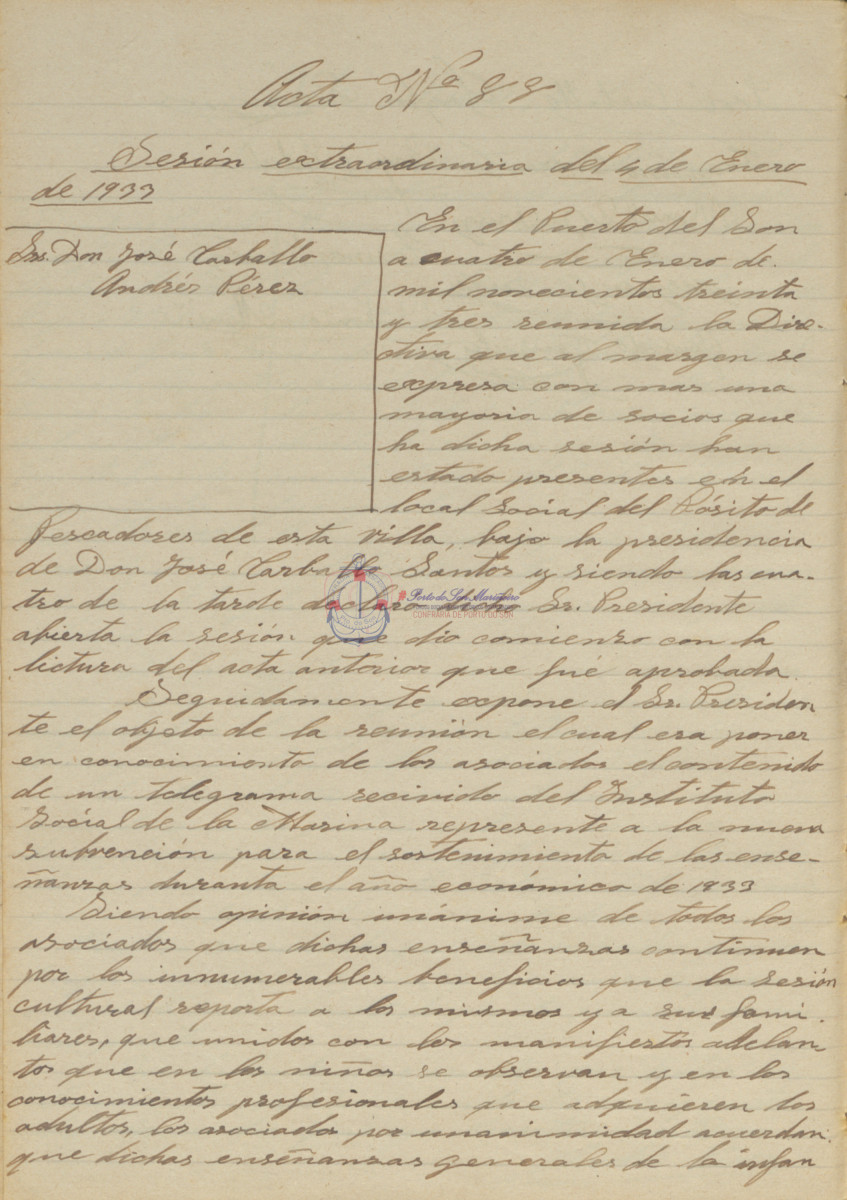 Acta Nº 88
Sesión extraordinaria del 4 de Enero
de 1933
Srs. Don José Carballo
Andrés Pérez
En el Puerto del Son
a cuatro de Enero de
mil novecientos treinta
y tres reunida la Dire-
ctiva que al margen se
expresa con mas una
mayoria de socios que
ha dicha sesión han
estado presentes en el
local Social del Pósito de
Pescadores de esta villa, bajo la presidencia
de Don José Carballo Santos y siendo las cua-
tro de la tarde declaro dicho Sr. Presidente
abierta la sesión que dio comienzo con la
lictura del acta anterior que fué aprobada.
Seguidamente expone el Sr. Presiden
te el objeto de la reunión el cual era poner
en conocimiento de los asociados el contenido
de un telegrama recivido del Instituto
Social de la Marina represente a la nueva
subvención para el sostenimiento de las ense-
ñanzas duranta el año económico de 1933
Siendo opinión unánime de todos los
asociados que dichas enseñanzas continuen
por los innumerables beneficios que la sesión
cultural reporta a los mismos y a sus fami-
liares, que unidos con los manifiestos adelan
tos que en los niños se observan y en los
conocimientos profesionales que adquieren los
adultos, los asociados por unanimidad acuerdan
que dichas enseñanzas generales de la infan
Porto do Son Mariñeiro
CONFRARÍA DE PORTO DO SON